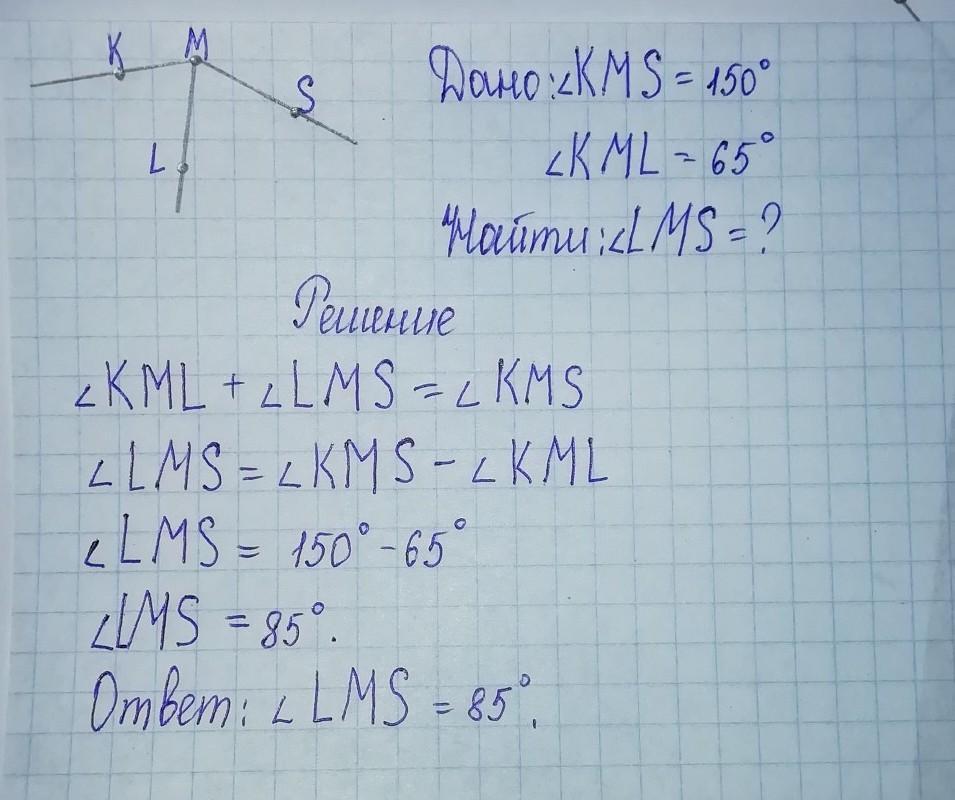 K M
S
L
Дано: ∠KMS = 150°
∠KML = 65°
Найти: ∠LMS = ?
Решение
∠KML + ∠LMS = ∠KMS
∠LMS = ∠KMS - ∠KML
∠LMS = 150° - 65°
∠LMS = 85°.
Ответ: ∠LMS = 85°.